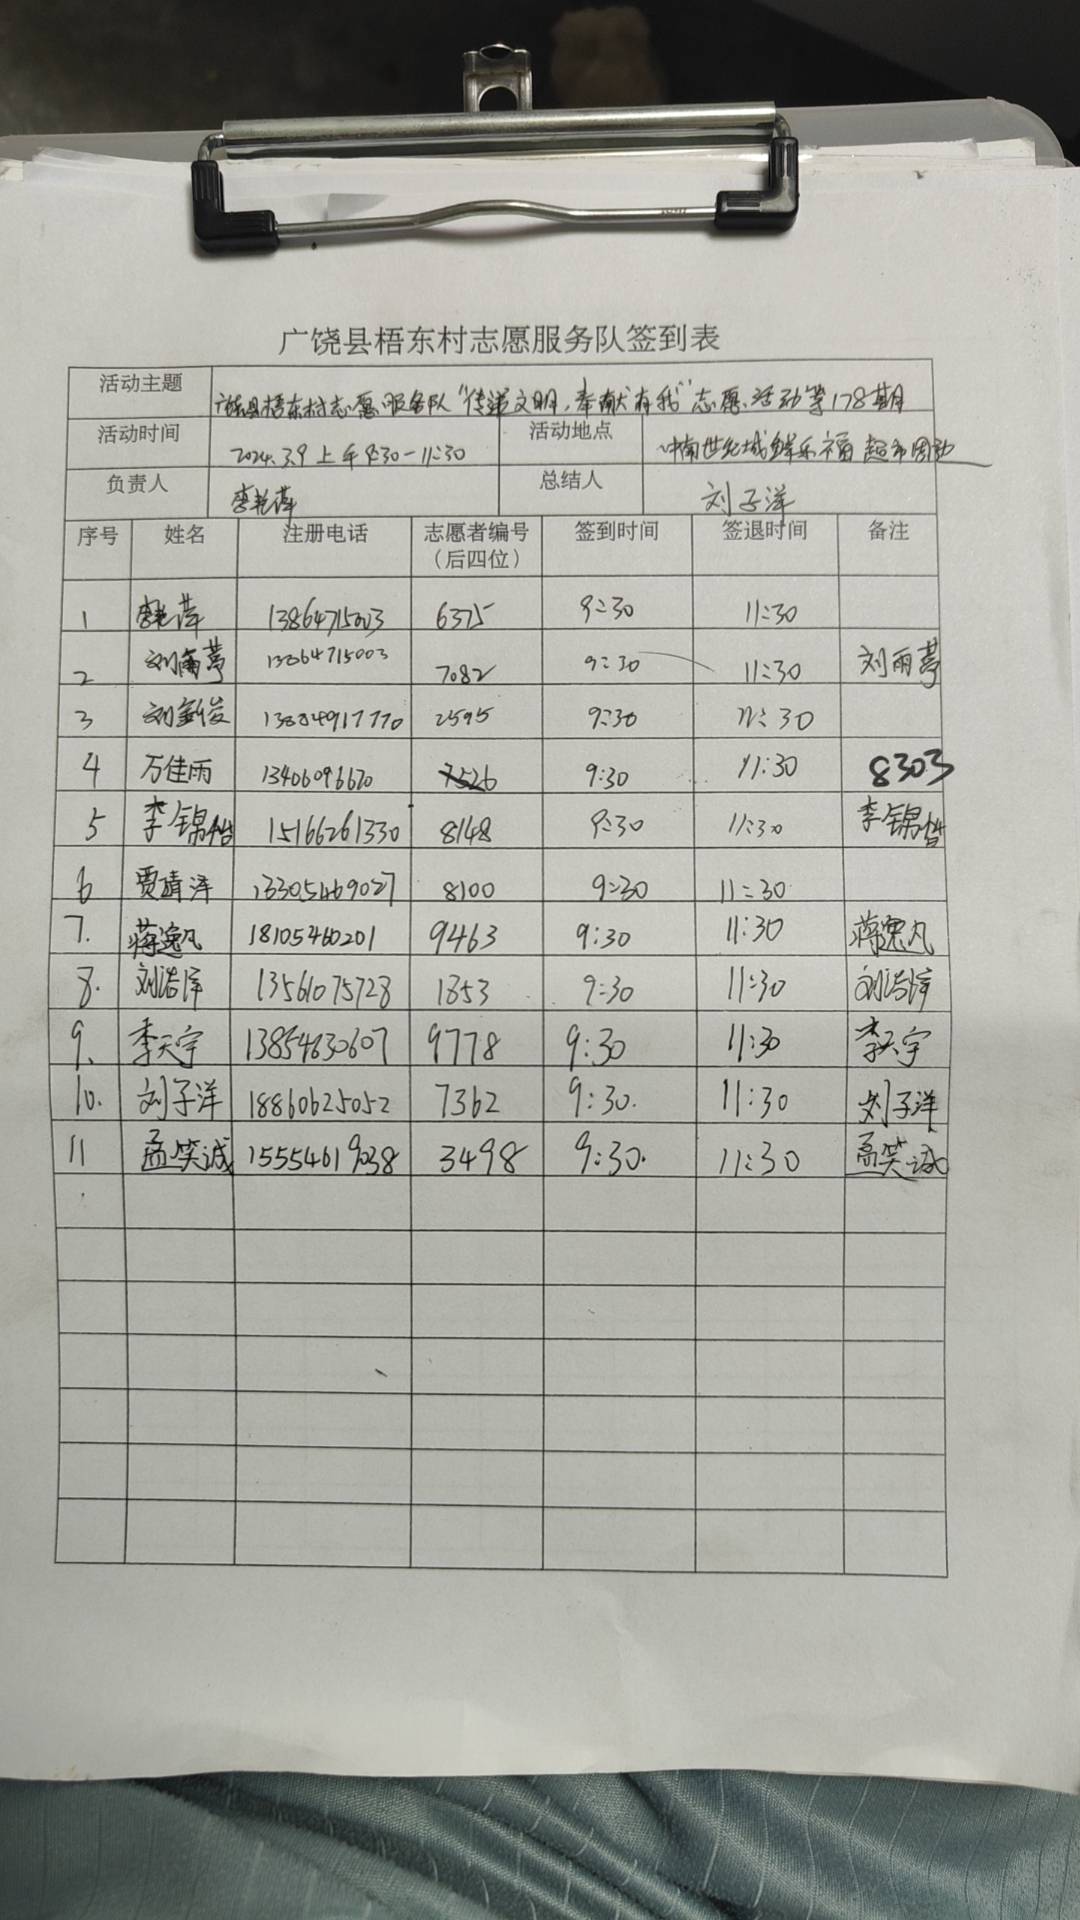 广饶县梧东村志愿服务队签到表
活动主题 广饶县梧东村志愿服务队“传递文明,奉献有我”志愿活动第178期
活动时间 2024.3.9 上午9:30-11:30 活动地点 中南世纪城鲜乐福超市周边
负责人 李艳萍 总结人 刘子洋
序号 姓名 注册电话 志愿者编号(后四位) 签到时间 签退时间 备注
1 李艳萍 13864715003 6375 9:30 11:30
2 刘雨荨 13864715003 7082 9:30 11:30 刘雨荨
3 2595 9:30 11:30
4 万佳雨 13406096670 9:30 11:30 8303
5 李锦怡 15166261330 8148 9:30 11:30 李锦怡
6 贾靖泽 13305469027 8100 9:30 11:30
7. 蒋逸凡 18105460201 9463 9:30 11:30 蒋逸凡
8. 刘浩泽 13561075728 1853 9:30 11:30 刘浩泽
9、 李天宇 13854630607 9778 9:30 11:30 李天宇
10. 刘子洋 18860625052 7362 9:30. 11:30 刘子洋
11 孟笑诚 15554619038 3498 9:30. 11:30 孟笑诚